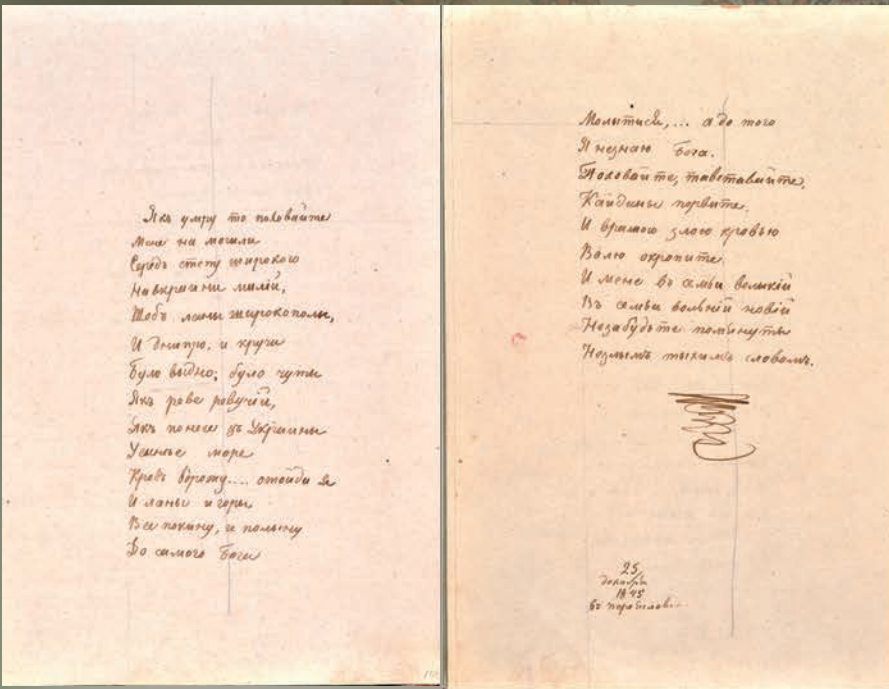 Якъ умру то поховайте
Мене на могили
Середъ степу широкого
На вкраини милій,
Щобъ ланы широкополи,
И Днипро, и кручи
Було выдно, було чуты
Якъ реве ревучій,
Якъ понесе зъ Украины
У синье море
Кровь ворожу.... отойди я
И ланы и горы
Все покину, и полыну
До самого Бога
Молытися,... а до того
Я незнаю Бога.
Поховайте, тавставайте,
Кайданы порвите,
И вражою злою кровью
Волю окропите.
И мене въ семьи великій
Въ семьи вольній новій
Незабудьте помьянуты
Незлымъ тыхимъ словомъ.
25
декабря
1845
въ